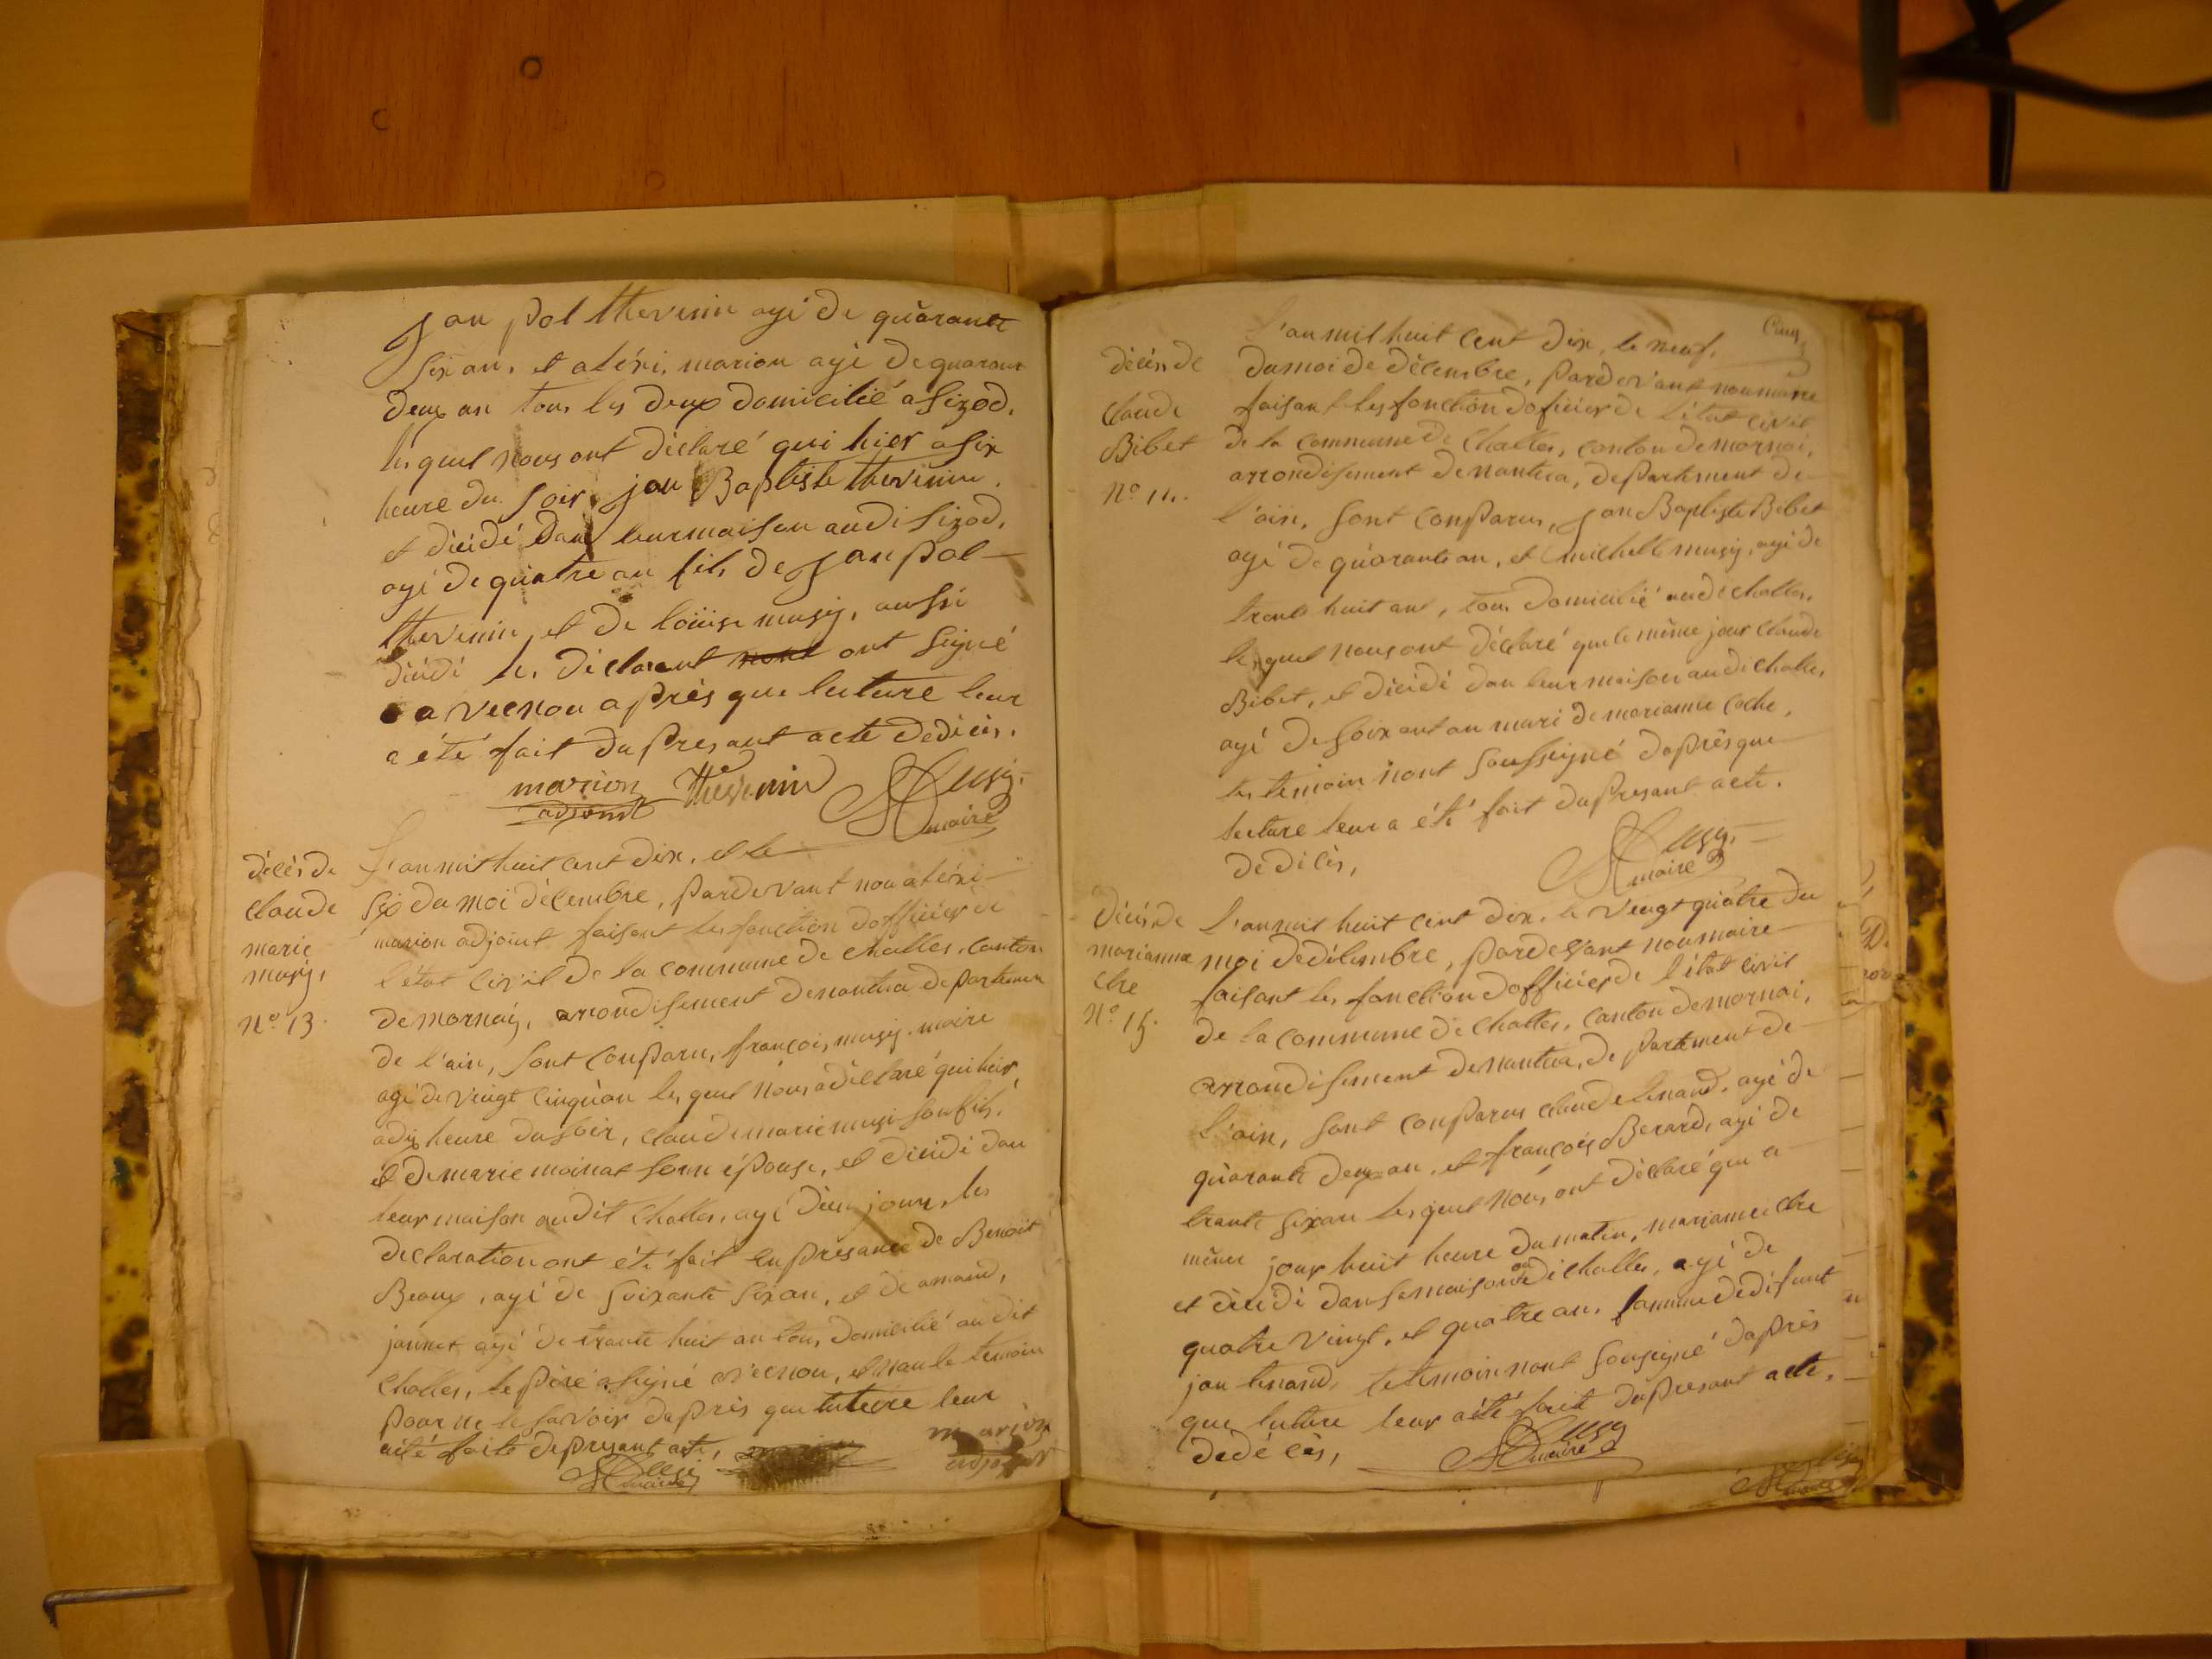 Jan pol thevenin agé de quarante
six an, et aléxi, marion agé de quarant
deux an tous les deux domicilié a sizod,
les quel nous ont déclaré qui hier a six
heure du soir, jan Baptiste thevenin,
et décidé dan leur maison audi sizod,
agé de quatre an fils de Jan pol
thevenin, et de loüise musy, aussi
décidé les déclarant ont signé
avec nou après que lecture leur
a été fait du présant acte dedécis,
marion
adjoint
thevenin
Musy
maire
décès de
claude
marie
musy,
N.º 13.
L'an mil huit cent dix, et le
six du moi décembre, pardevant nou aléxi
marion adjoint faisant les fonction dofficier de
l'état civil de la commune de challes, canton
de mornay, arrondisement denantua departemen
de l'ain, sont conparu, françois musy, maire
agé de vingt cinq an les quel nous a déclaré qui hier
a dix heure du soir, claude marie musi son fils,
et de marie moinat sonn épouse, et décidé dan
leur maison audit challes, agé dun jour, les
declaration ont été fait en présance de Benoit
Beaux, agé de soixante six an, et de amand,
jannet agé de trante huit an tous domicilié au dit
challes, le père a signé avecnou, et non le temoin
pour ne le savoir daprès que luteure leur
aété faite du présant acte,
Musy
maire
marion
adjoint
Cinq
décès de
claude
Bibet
N.º 14.
l'an mil huit cent dix, le neuf,
du moi de décembre, pardevant nou maire
faisant les fonction doficier de l'état civil
de la commune de challes, canton de mornai,
arrondisement de nantua, departement de
l'ain, sont conparus, Jan Baptiste Bibet
agé de quarante an, et michelle musy, agé de
trante huit ant, tous domicilié audi challes,
les quel nous ont déclaré que le même jour claude
Bibet, et décidé dan leur maison audi challes,
agé de soixant an mari de marianne cache,
les temoin nont soussigné daprès que
lecture leur a été fait du présant acte
de décès,
Musy
maire
décis de
marianne
chre
N.º 15.
l'an mil huit cent dix, le vengt quatre du
moi dedécembre, pardevant nou maire
faisant les fonction dofficier de l'état civil
de la commune de challes, canton de mornai,
arrondisement de nantua, de partement de
l'ain, sont conparus claude lenand, agé de
quarante deux an, et françois Berard, agé de
trante six an les quel nous ont déclaré que a
mêmes jour huit heure du matin, marianne chre
et décidé dan sa maison au di challes, agé de
quatre vingt, et quatre an, famme dedifunt
jan lenand, le temoin nont sousigné daprès
que luture leur aété fait du présant acte,
dedé cès,
Musy
maire